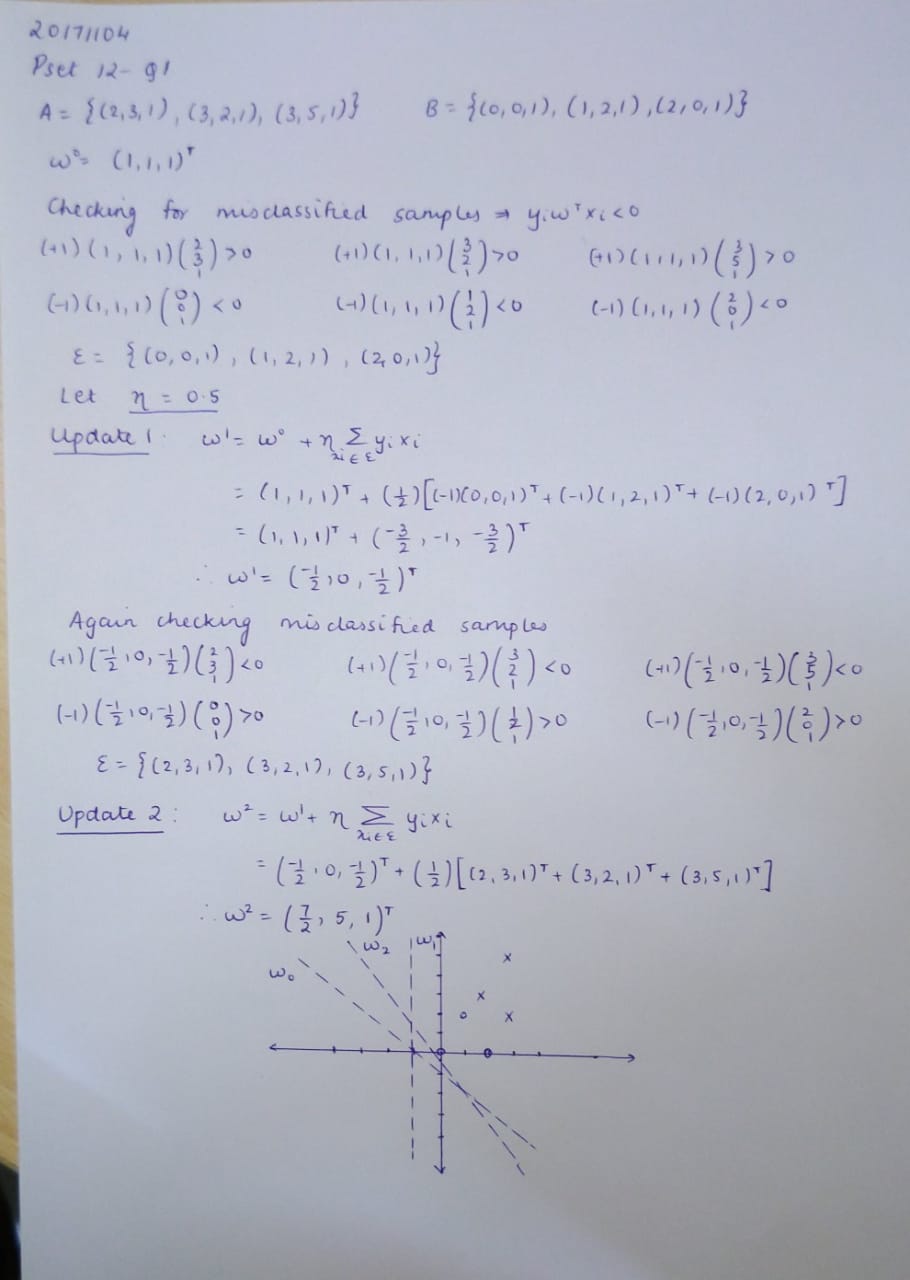 20171104
Pset 12- q1
A = {(2,3,1), (3,2,1), (3,5,1)} B = {(0,0,1), (1,2,1), (2,0,1)}
w⁰= (1,1,1)ᵀ
Checking for misclassified samples ⇒ yᵢwᵀxᵢ<0
(+1)(1,1,1)(2 3 1)>0 (+1)(1,1,1)(3 2 1)>0 (+1)(1,1,1)(3 5 1)>0
(-1)(1,1,1)(0 0 1)<0 (-1)(1,1,1)(1 2 1)<0 (-1)(1,1,1)(2 0 1)<0
ε = {(0,0,1), (1,2,1), (2,0,1)}
Let η = 0.5
Update 1: w¹= w⁰ + η Σ yᵢxᵢ
xᵢ∈ε
= (1,1,1)ᵀ + (1/2)[(-1)(0,0,1)ᵀ+(-1)(1,2,1)ᵀ+(-1)(2,0,1)ᵀ]
= (1,1,1)ᵀ + (-3/2, -1, -3/2)ᵀ
∴ w¹= (-1/2, 0, -1/2)ᵀ
Again checking misclassified samples
(+1)(-1/2, 0, -1/2)(2 3 1)<0 (+1)(-1/2, 0, -1/2)(3 2 1)<0 (+1)(-1/2, 0, -1/2)(3 5 1)<0
(-1)(-1/2, 0, -1/2)(0 0 1)>0 (-1)(-1/2, 0, -1/2)(1 2 1)>0 (-1)(-1/2, 0, -1/2)(2 0 1)>0
ε = {(2,3,1), (3,2,1), (3,5,1)}
Update 2: w² = w¹+ η Σ yᵢxᵢ
xᵢ∈ε
= (-1/2, 0, -1/2)ᵀ + (1/2)[(2,3,1)ᵀ + (3,2,1)ᵀ + (3,5,1)ᵀ]
∴ w² = (7/2, 5, 1)ᵀ
w₀ w₂ w₁